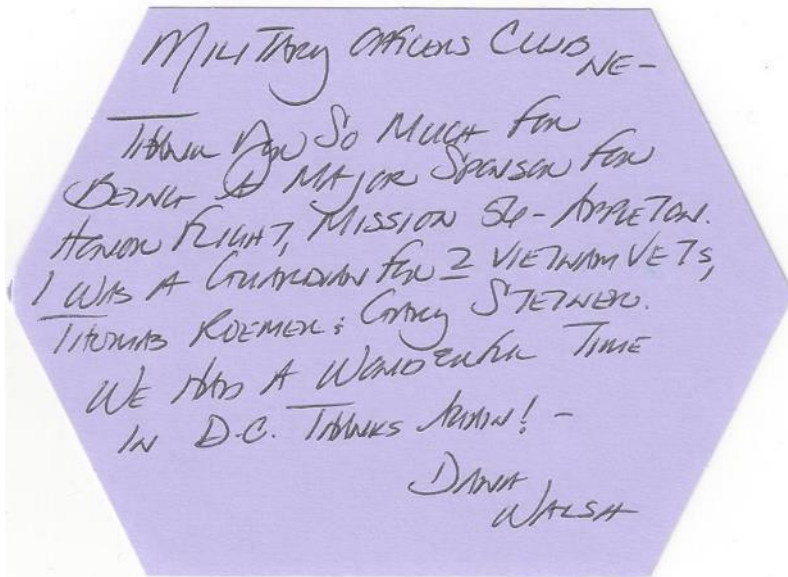 Military Officers Club NE-
Thank You So Much For
Being A Major Sponsor For
Honor Flight, Mission 54-Appleton.
I Was A Guardian For 2 Vietnam Vets,
Thomas Roemer & Gary Steiner.
We Had A Wonderful Time
In D.C. Thanks Again! -
Dana
Walsh